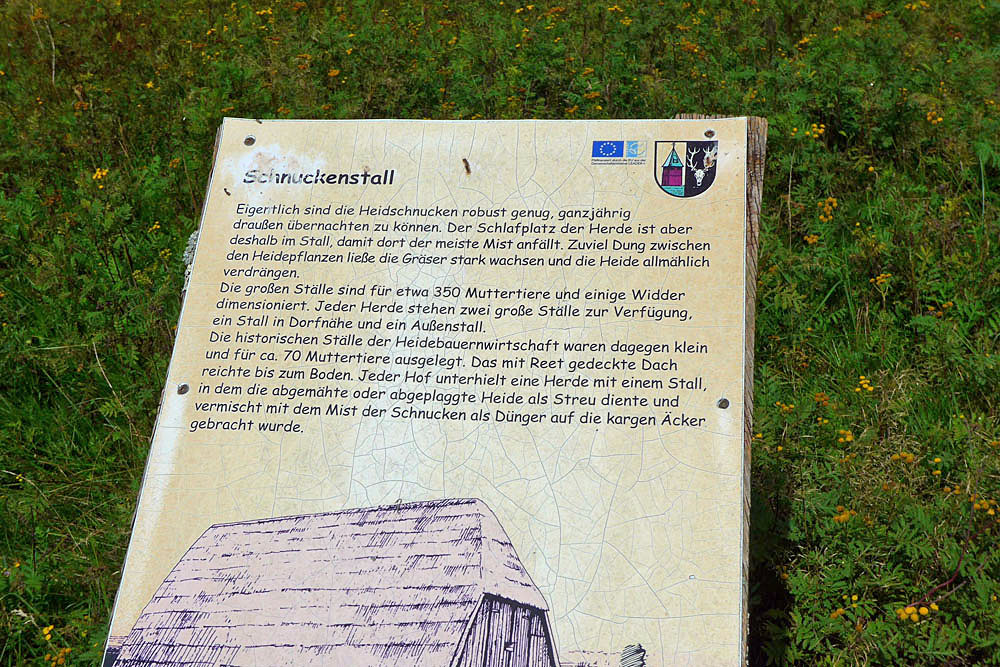 Schnuckenstall
Eigentlich sind die Heidschnucken robust genug, ganzjährig
draußen übernachten zu können. Der Schlafplatz der Herde ist aber
deshalb im Stall, damit dort der meiste Mist anfällt. Zuviel Dung zwischen
den Heidepflanzen ließe die Gräser stark wachsen und die Heide allmählich
verdrängen.
Die großen Ställe sind für etwa 350 Muttertiere und einige Widder
dimensioniert. Jeder Herde stehen zwei große Ställe zur Verfügung,
ein Stall in Dorfnähe und ein Außenstall.
Die historischen Ställe der Heidebauernwirtschaft waren dagegen klein
und für ca. 70 Muttertiere ausgelegt. Das mit Reet gedeckte Dach
reichte bis zum Boden. Jeder Hof unterhielt eine Herde mit einem Stall,
in dem die abgemähte oder abgeplaggte Heide als Streu diente und
vermischt mit dem Mist der Schnucken als Dünger auf die kargen Äcker
gebracht wurde.